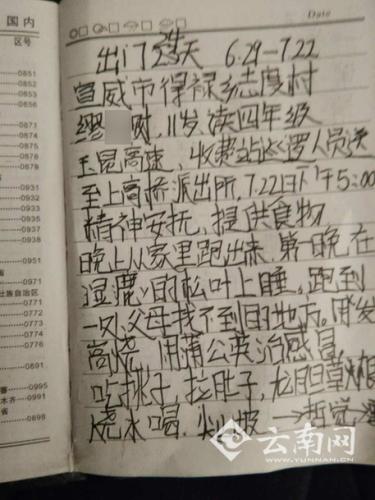 国内
区号
0851
0852
0853
0854
0856
0871
0874
0878
0931
0932
0934
0938
0941
0951
0971
壮族自治区
0771
0773
0774
0776
0891
0995
木齐
0991
省
0898
Date
出门24天 6.29-7.22
宣威市得禄乡志度村
缪 财,11岁读四年级
玉昆高速,收费站巡逻人员送
至上高桥派出所,7.22日下午5:00
精神安抚,提供食物
晚上从家里跑出来.第一晚在
湿漉的松叶上睡,跑到
一处父母找不到的地方,
高烧 用蒲公英治感冒
吃桃子,拉肚子,龙胆草
烧水喝.
云南网
WWW.YUNNAN.CN